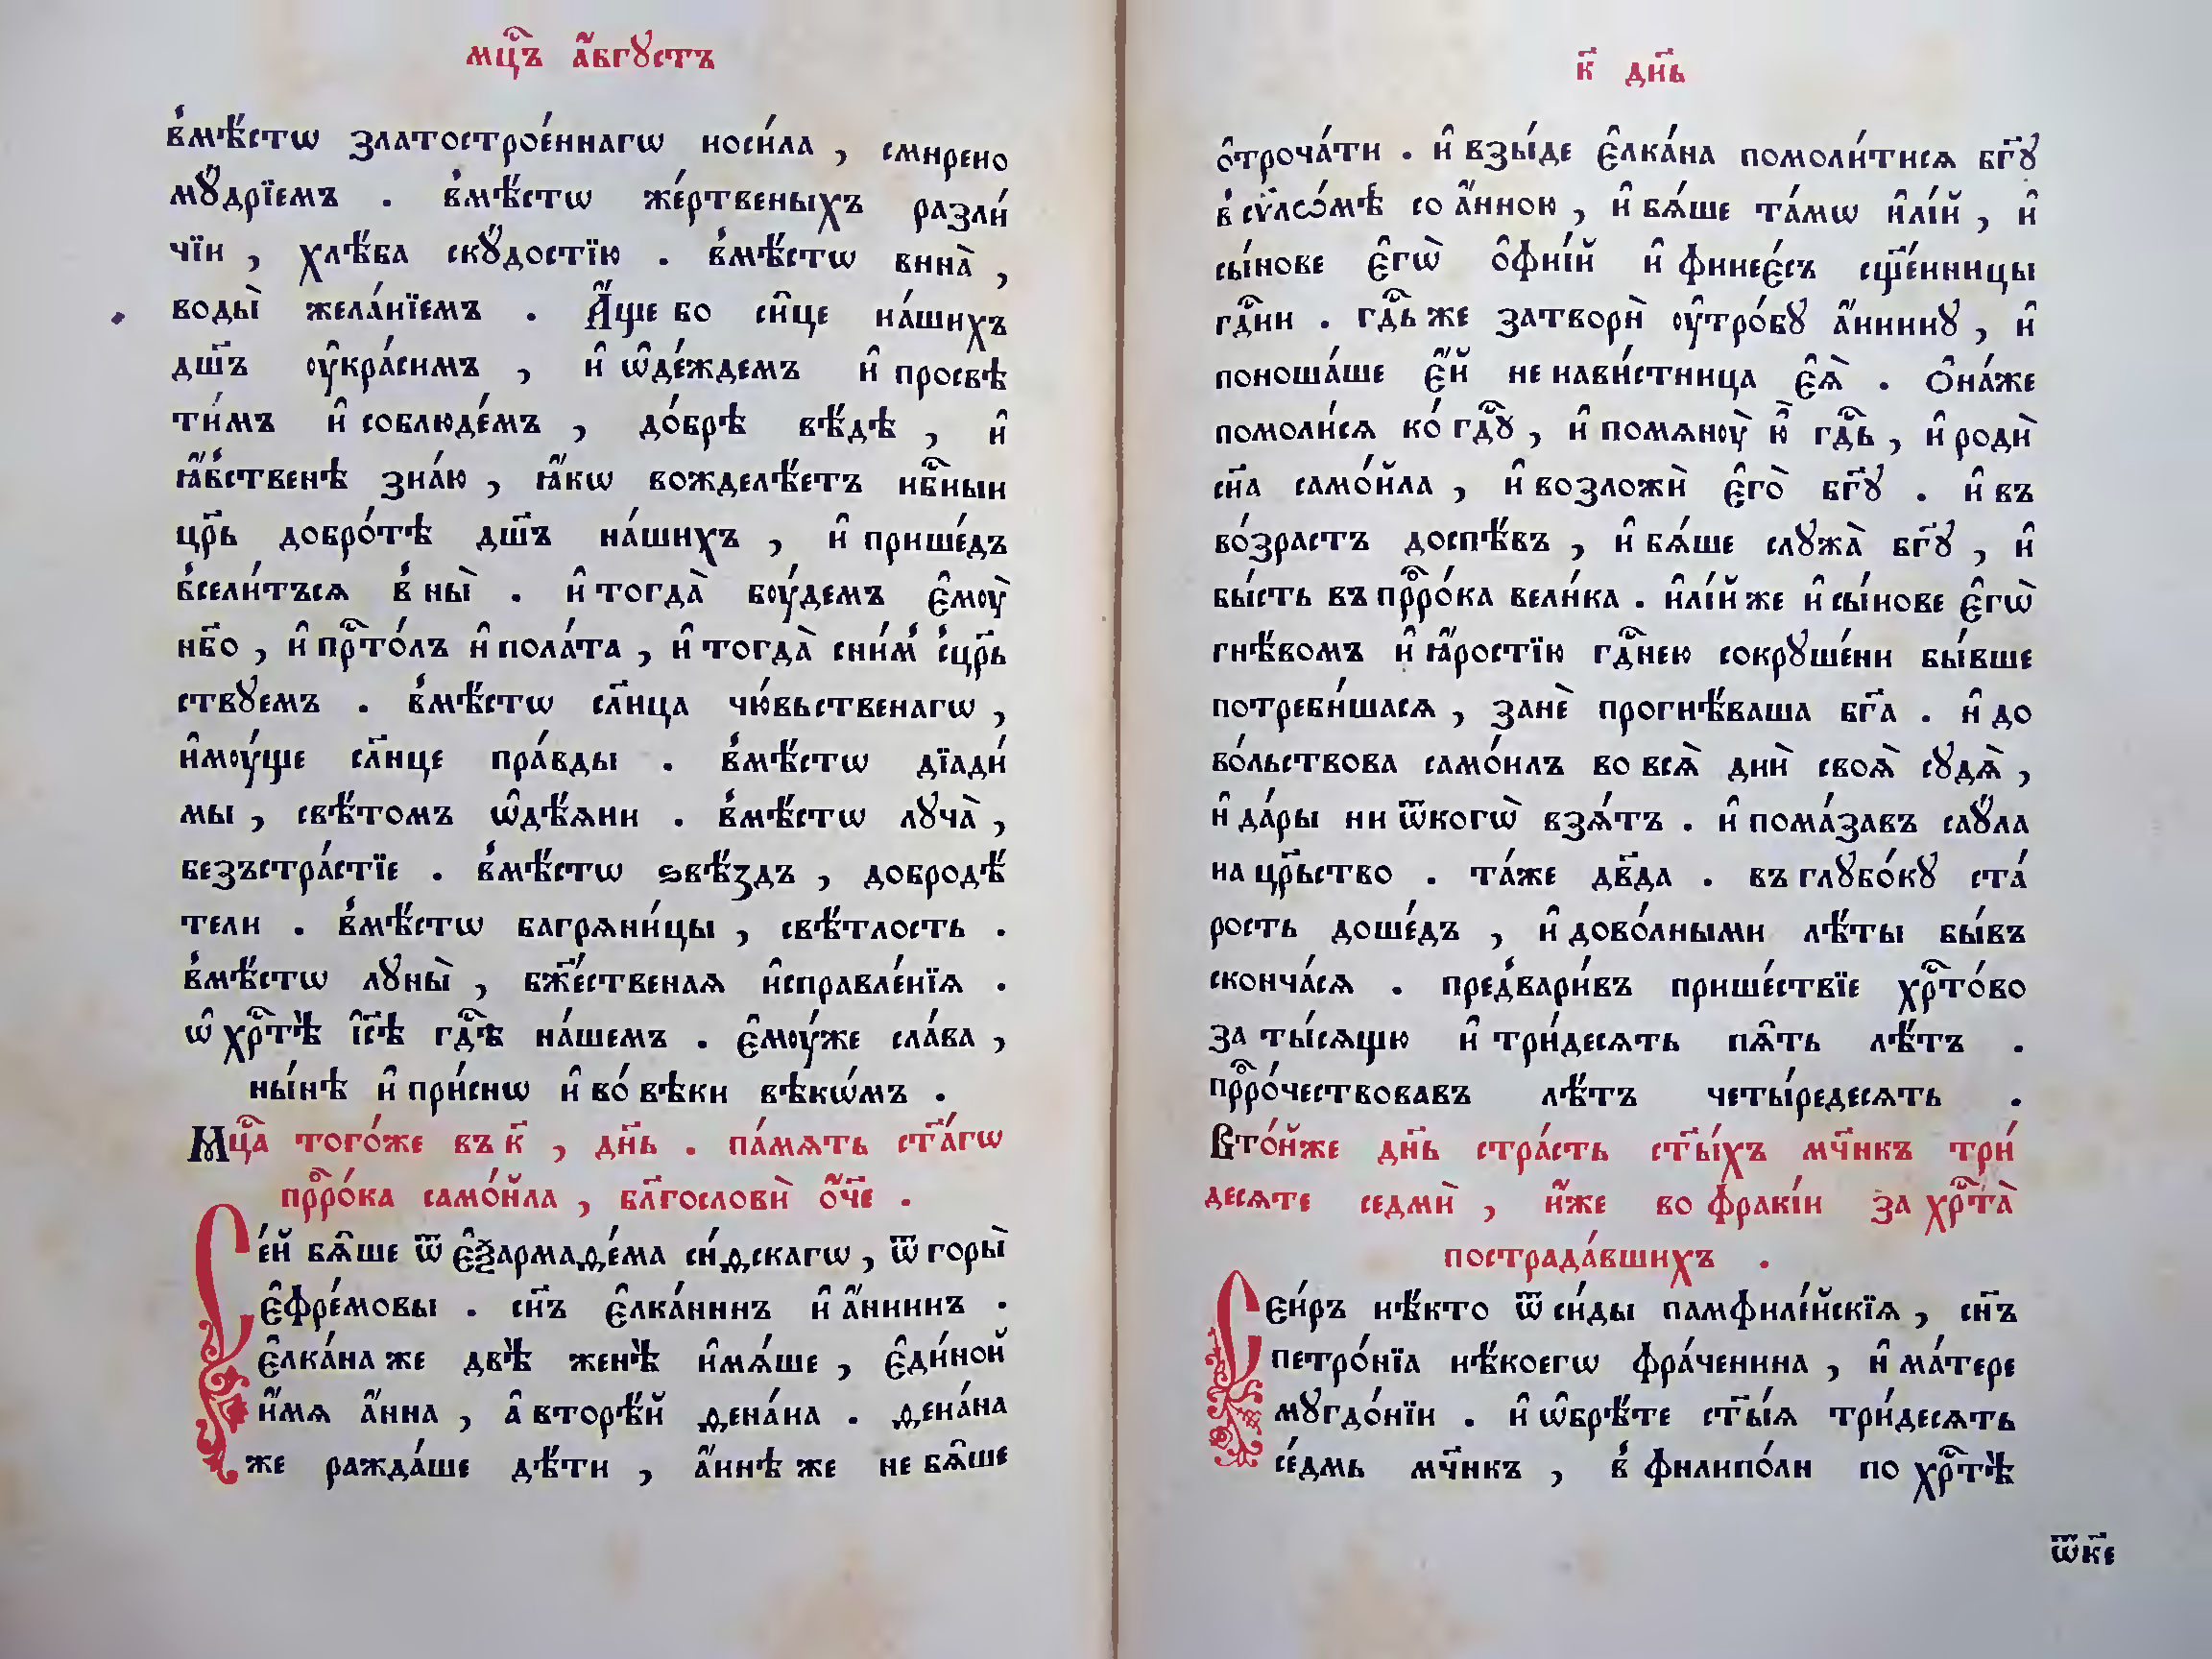 мц҇ъ а҆́вгꙋстъ
вмѣ́стѡ златострое́ннагѡ носи́ла , смирено
мꙋ́дрїемъ . вмѣ́стѡ же́ртвеныхъ разли́
чїи , хлѣ́ба скꙋ́достїю . вмѣ́стѡ вина̀ ,
воды̀ жела́нїемъ . А҆́ще бо си҆це на́шихъ
дш҃ъ ᲂу҆кра́симъ , и҆ ѡ҆де́ждемъ и҆ просвѣ
ти́мъ и҆ соблюде́мъ , до́брѣ вѣ́дѣ , и҆
ꙗ҆́вственѣ зна́ю , ꙗ҆́кѡ вожделѣ́етъ нб҇ныи
цр҃ь добро́тѣ дш҃ъ на́шихъ , и҆ прише́дъ
всели́тъсѧ в ны̀ . и҆ тогда̀ боу́демъ є҆моу̀
нб҃о , и҆ прⷭ҇то́лъ и҆ пола́та , и҆ тогда̀ сни́м сцр҃ь
ствꙋемъ . вмѣ́стѡ сл҃нца чю́вьственагѡ ,
и҆моу́ще сл҃нце пра́вды . вмѣ́стѡ дїади́
мы , свѣ́томъ ѡ҆дѣ́ѧни . вмѣ́стѡ лꙋча̀ ,
безъстра́стїе . вмѣ́стѡ ѕвѣ́здъ , добродѣ́
тели . вмѣ́стѡ багрѧни́цы , свѣ́тлость .
вмѣ́стѡ лꙋны̀ , бж҃е́ственаѧ и҆справле́нїѧ .
ѡ҆ хрⷭ҇тѣ̀ і҆с҃ѣ гдⷭ҇ѣ на́шемъ . є҆моу́же сла́ва ,
ны́нѣ и҆ при́снѡ и҆ во́ вѣки вѣкѡ́мъ .
Мцⷭ҇а того́же въ к҃ , дн҃ь . па́мѧть ст҃а́гѡ
прⷪ҇ро́ка само́и҆ла , бл҃гословѝ ѻ҆́ч҃е .
Се́й бѧ҆ше ѿ є҆ѯармаде́ма си́дскагѡ , ѿ горы̀
є҆фре́мовы . сн҃ъ є҆лка́нинъ и҆ а҆́ннинъ .
є҆лка́на же двѣ̀ женѣ̀ и҆мѧ́ше , є҆ди́ной
и҆́мѧ а҆́нна , а҆ вторѣ́й дена́на . дена́на
же ражда́ше дѣ́ти , а҆́ннѣ же не бѧ҆ше
к҃ дн҃ь
ѻ҆троча́ти . и҆ взы́де є҆лка́на помоли́тисѧ бг҃ꙋ
в сѵ҆лѡ́мѣ со а҆́нною , и҆ бѧ́ше та́мѡ и҆лі́й , и҆
сы́нове є҆гѡ̀ ѻ҆фні́й и҆ финее́съ сщ҃е́нницы
гдⷭ҇ни . гдⷭ҇ь же затворѝ ᲂу҆тро́бꙋ а҆́ннинꙋ , и҆
поноша́ше є҆́й не нави́стница є҆ѧ̀ . Ѻ҆на́же
помоли́сѧ ко́ гдⷭ҇ꙋ , и҆ помѧноу̀ ю҆̀ гдⷭ҇ь , и҆ родѝ
сн҃а само́и҆ла , и҆ возложѝ є҆го̀ бг҃ꙋ . и҆ въ
во́зрастъ доспѣ́въ , и҆ бѧ́ше слꙋжа̀ бг҃ꙋ , и҆
бы́сть въ прⷪ҇ро́ка вели́ка . и҆лі́й же и҆ сы́нове є҆гѡ̀
гнѣ́вомъ и҆ ꙗ҆́ростїю гдⷭ҇нею сокрꙋше́ни бы́вше
потреби́шасѧ , занѐ прогнѣ́ваша бг҃а . и҆ до
во́льствова само́илъ во всѧ̀ днѝ своѧ̀ сꙋдѧ̀ ,
и҆ да́ры ни ѿкогѡ̀ взѧ́тъ . и҆ пома́завъ саꙋ́ла
на цр҃ьство . та́же дв҃да . въ глꙋбо́кꙋ ста́
рость доше́дъ , и҆ дово́лными лѣ́ты бы́въ
сконча́сѧ . предвари́въ прише́ствїе хрⷭ҇то́во
за ты́сѧщю и҆ три́десѧть пѧ҆ть лѣ́тъ .
прⷪ҇ро́чествовавъ лѣ́тъ четы́редесѧть .
Вто́йже дн҃ь стра́сть ст҃ы́хъ мч҃нкъ три́
десѧте седмѝ , и҆̀же во фракі́и за хрⷭ҇та̀
пострада́вшихъ .
Сеи́ръ нѣ́кто ѿ си́ды памфилі́йскїѧ , сн҃ъ
петро́нїа нѣ́коегѡ фра́ченина , и҆ ма́тере
мꙋгдо́нїи . и҆ ѡ҆брѣ́те ст҃ы́ѧ три́десѧть
се́дмь мч҃нкъ , в филипо́ли по хрⷭ҇тѣ̀
ѿк҃е